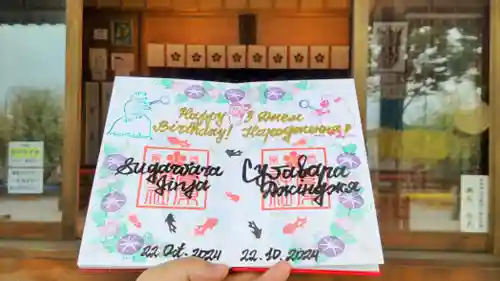 Happy
Birthday!
З Днем
Народження!
Sugawara
Jinja
Сугавара
Джінджя
22 Oct. 2024
22.10.2024